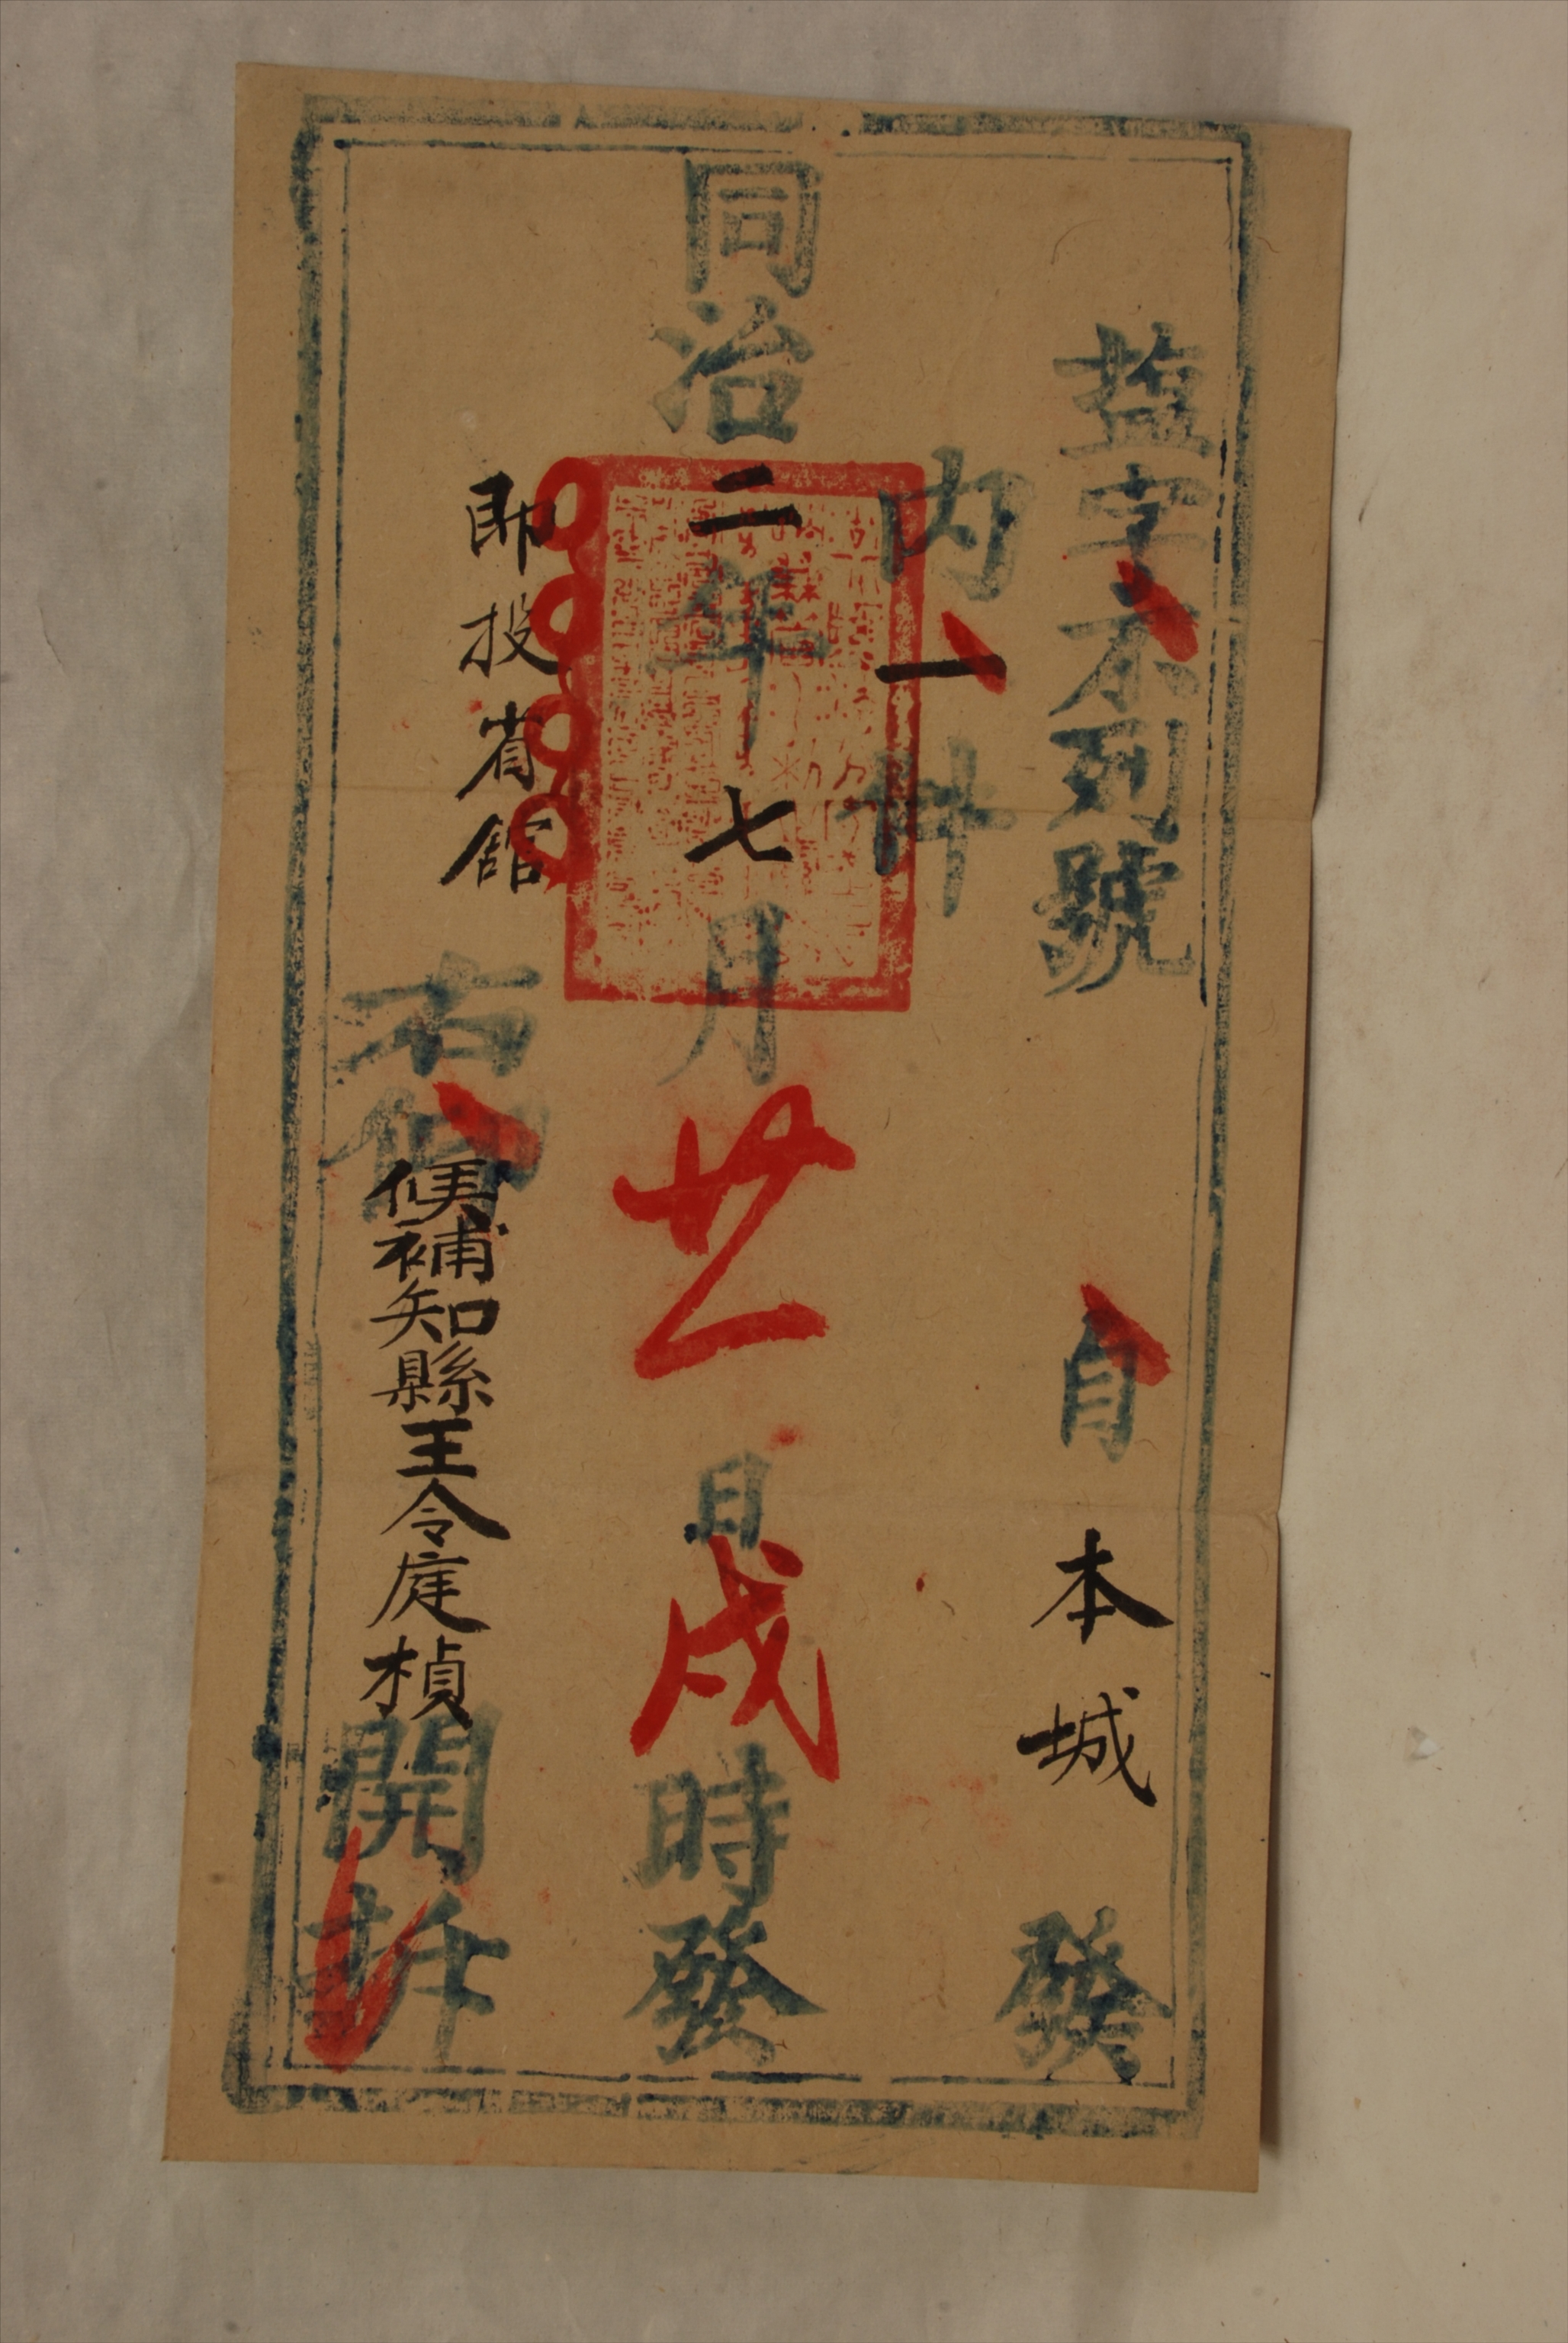 盐字不列號
自本城發
內一件
同治二年七月廿一日戌時發
即投省館
右仰候補知縣王令庭楨開拆